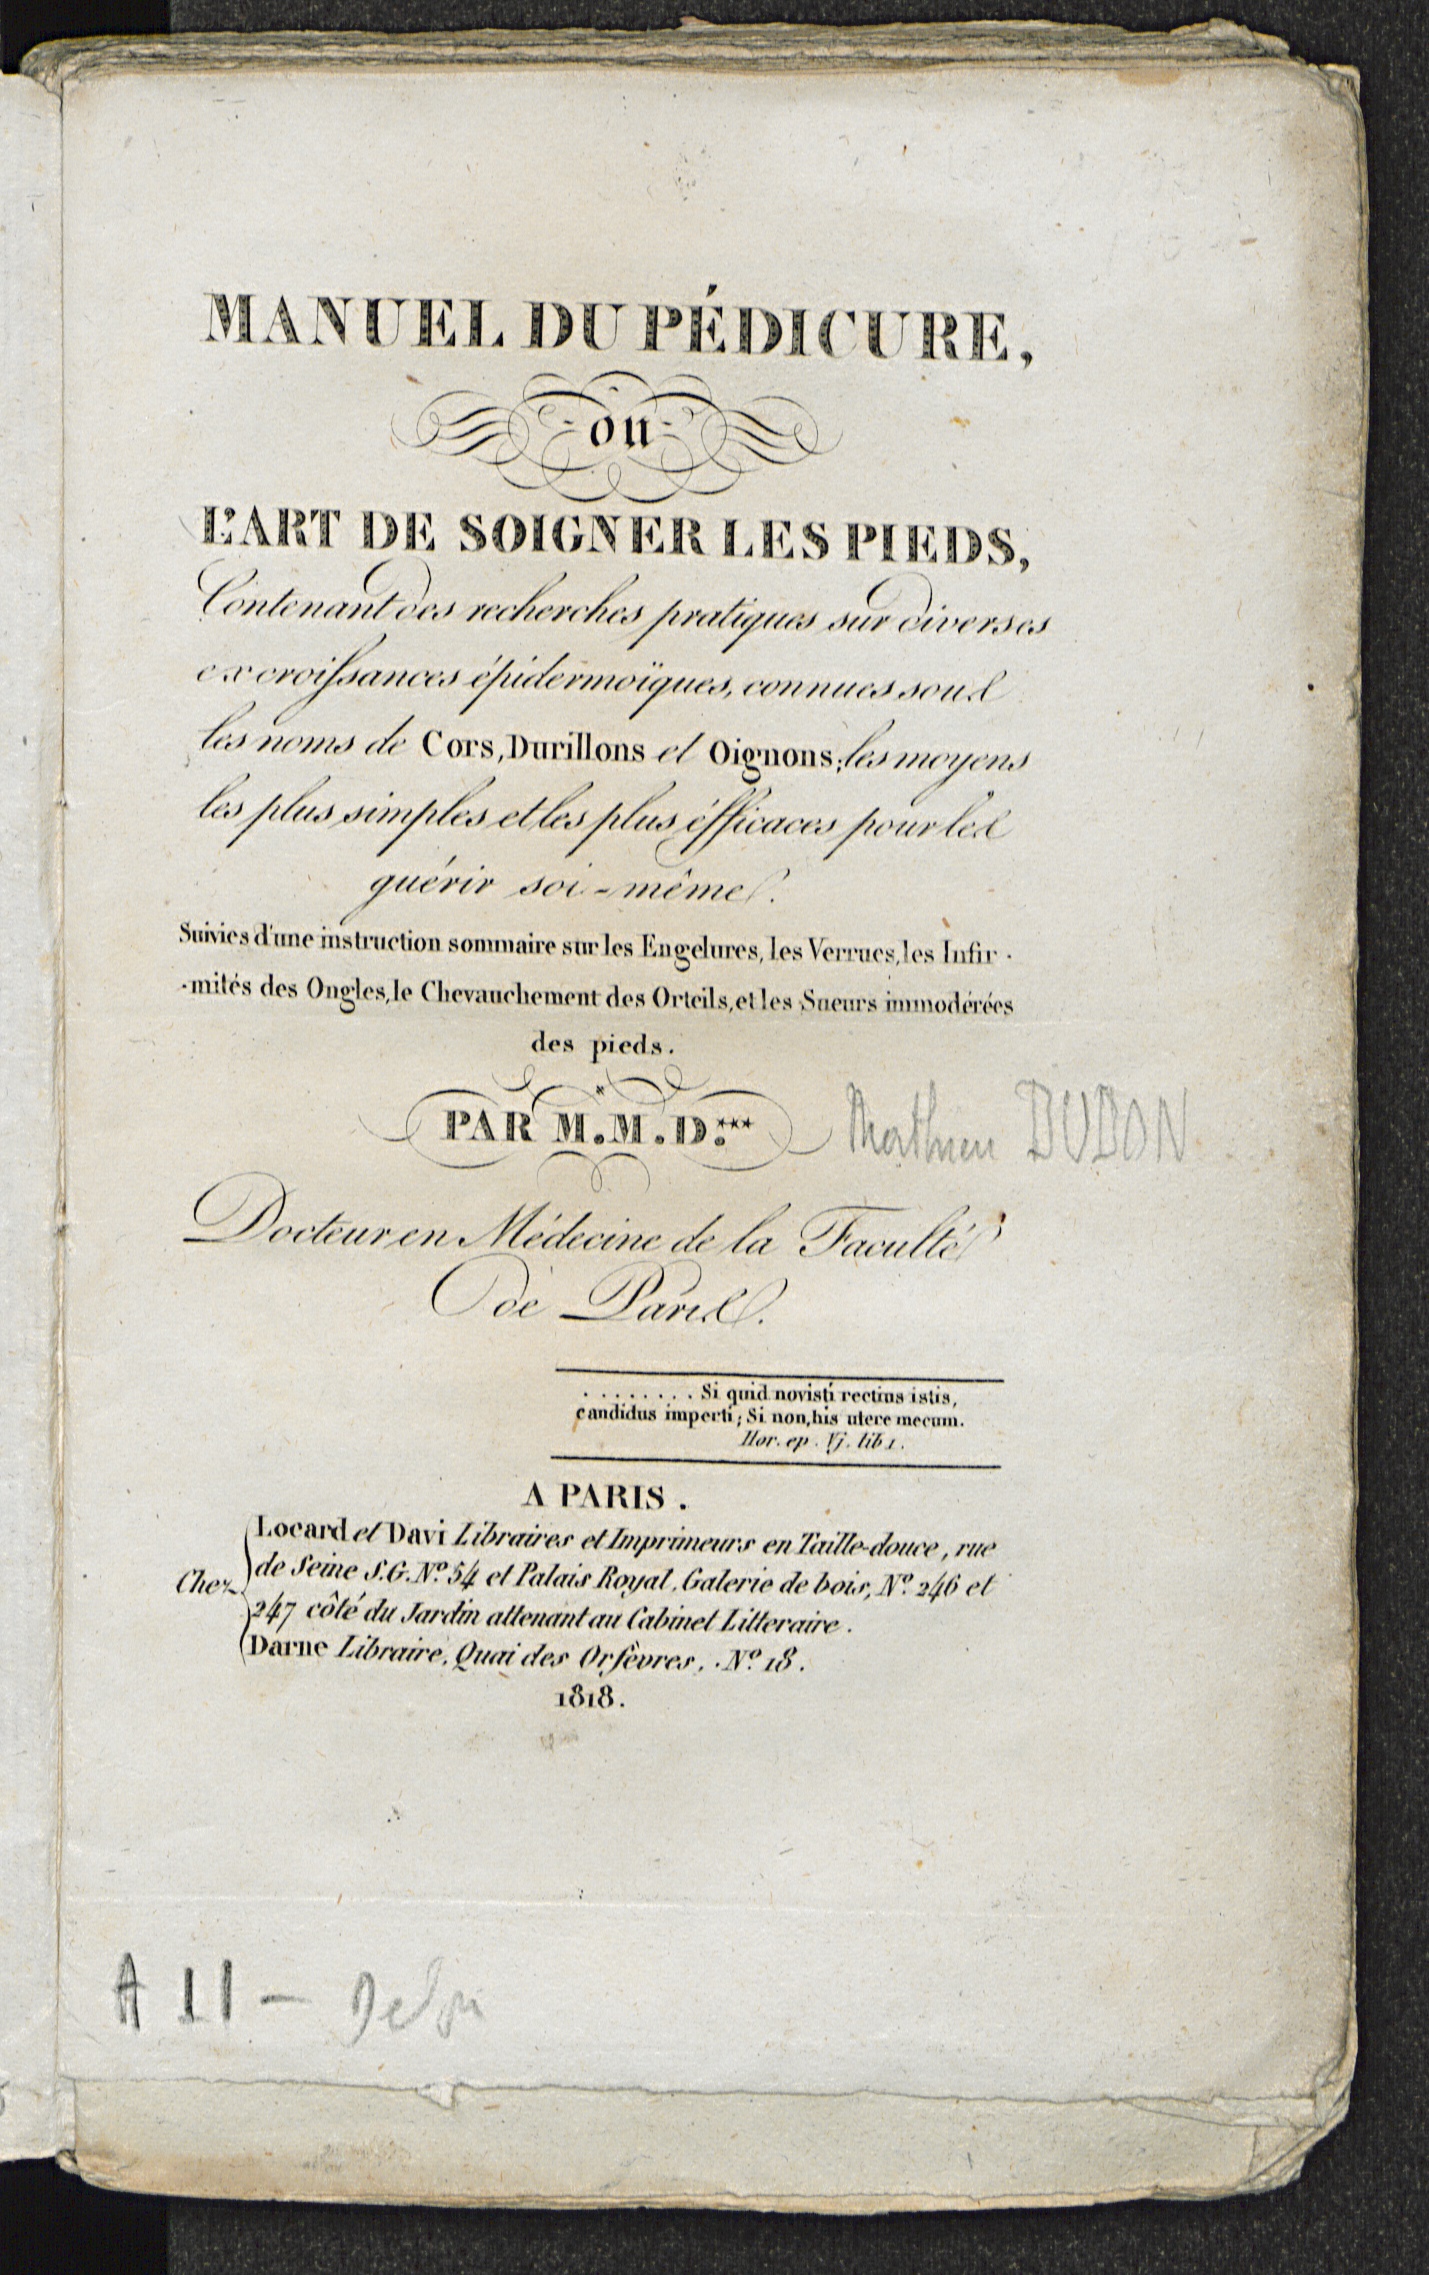 MANUEL DU PÉDICURE,
ou
L'ART DE SOIGNER LES PIEDS,
Contenant des recherches pratiques sur diverses
excroissances épidermoïques, connues sous
les noms de Cors, Durillons et Oignons; les moyens
les plus simples et les plus éfficaces pour les
guérir soi-même.
Suivies d'une instruction sommaire sur les Engelures, les Verrues, les Infir-
-mités des Ongles, le Chevauchement des Orteils, et les Sueurs immodérées
des pieds.
PAR M. M. D.***
Mathieu DUDON
Docteur en Médecine de la Faculté
de Paris.
........ Si quid novisti rectius istis,
candidus imperti; Si non, his utere mecum.
Hor. ep. Vj. lib 1.
A PARIS.
Chez
Locard et Davi Libraires et Imprimeurs en Taille-douce, rue
de Seine S.G. Nº. 54 et Palais Royal, Galerie de bois, Nº. 246 et
247 côté du Jardin attenant au Cabinet Litteraire.
Darne Libraire, Quai des Orfèvres, Nº. 18.
1818.
A 11 -